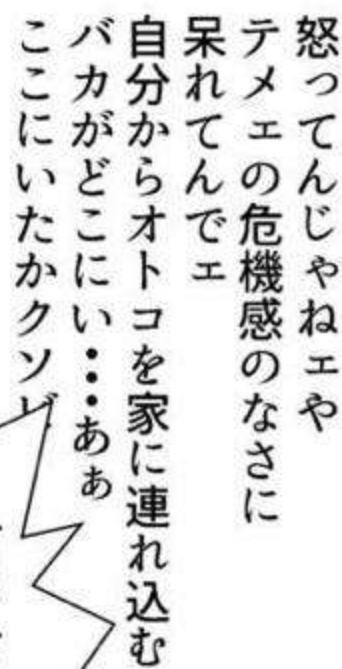 怒ってんじゃねェや
テメェの危機感のなさに
呆れてんでェ
自分からオトコを家に連れ込む
バカがどこにい…あぁ
ここにいたかクソ